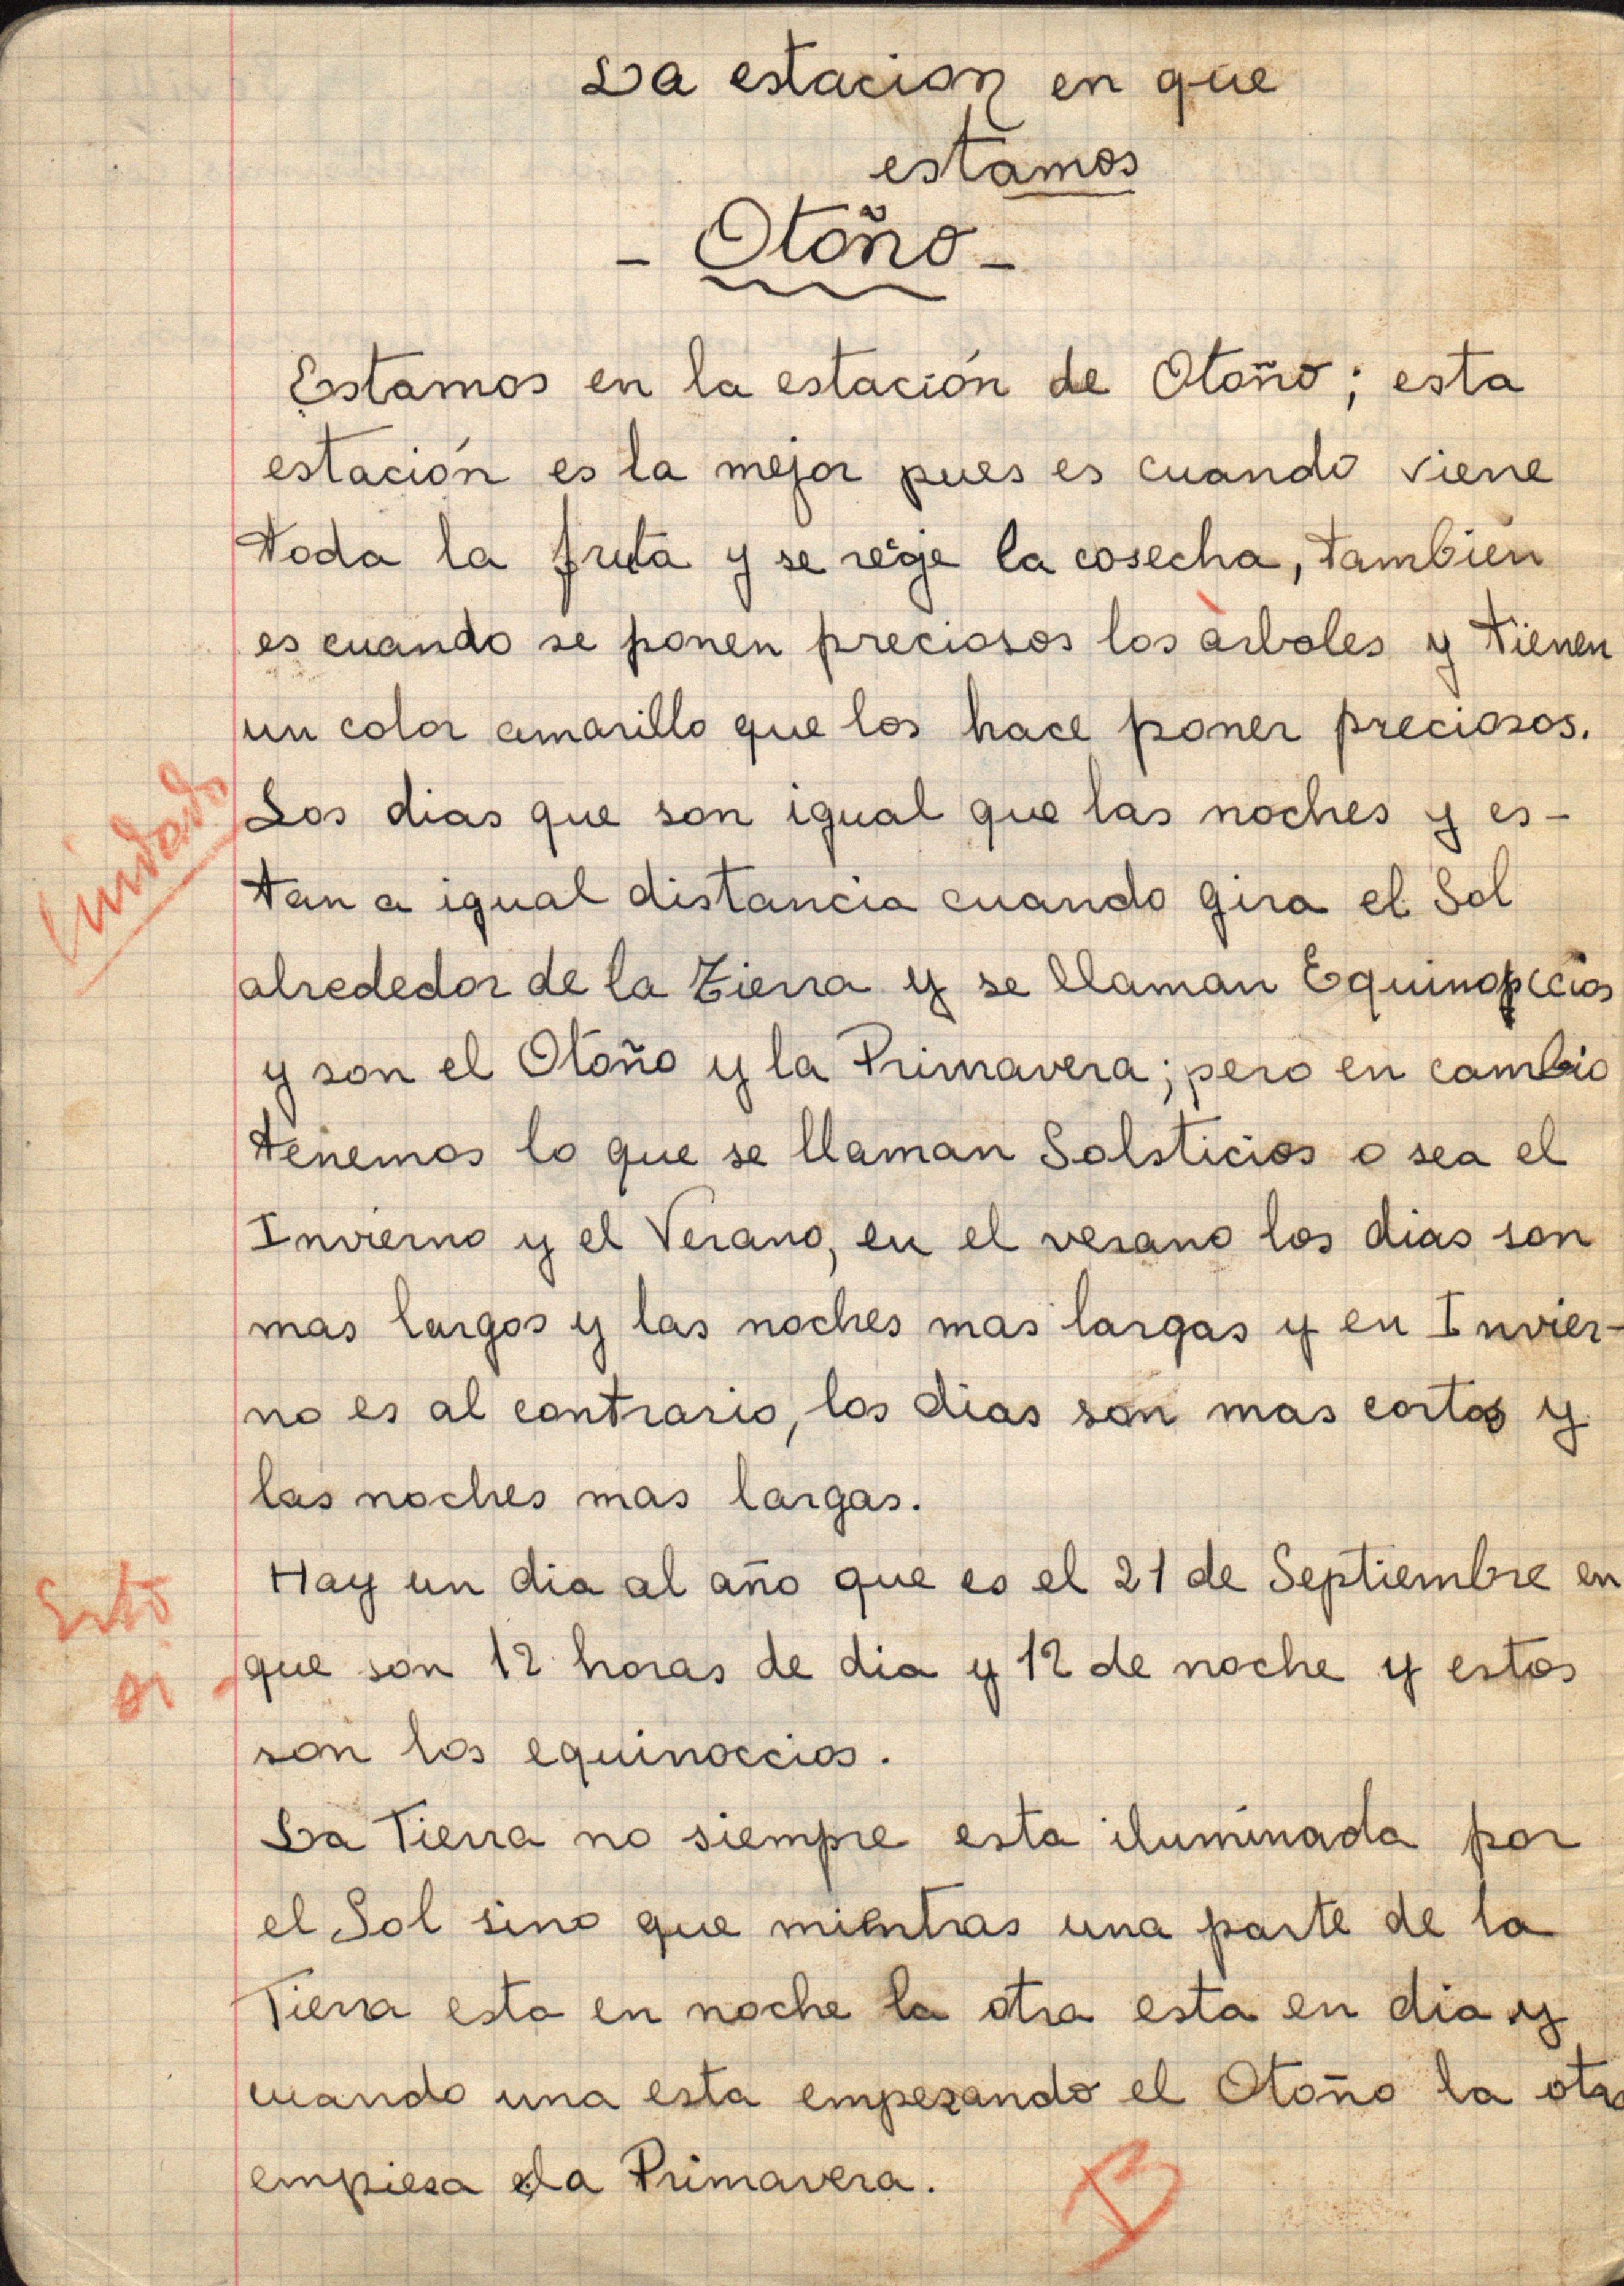 La estacion en que
estamos
- Otoño -
Estamos en la estación de Otoño; esta
estación es la mejor pues es cuando viene
toda la fruta y se rege la cosecha, tambien
es cuando se ponen preciosos los àrboles y tienen
un color amarillo que los hace poner preciosos.
Los dias que son igual que las noches y es-
tan a igual distancia cuando gira el Sol
Cuidado
alrededor de la Tierra y se llaman Equinoccios
y son el Otoño y la Primavera; pero en cambio
tenemos lo que se llaman Solsticios o sea el
Invierno y el Verano, en el verano los dias son
mas largos y las noches mas largas y en Invier-
no es al contrario, los dias son mas cortos y
las noches mas largas.
Hay un dia al año que es el 21 de Septiembre en
Esto
si -
que son 12 horas de dia y 12 de noche y estos
son los equinoccios.
La Tierra no siempre esta iluminada por
el Sol sino que mientras una parte de la
Tierra esta en noche la otra esta en dia y
cuando una esta empezando el Otoño la otra
empieza la Primavera.
B